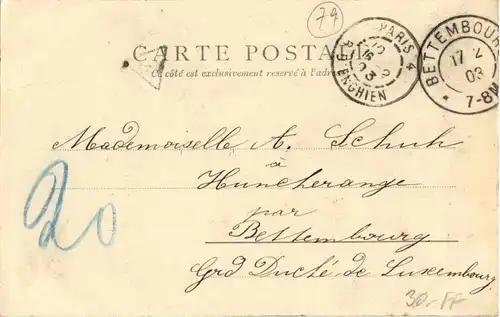 79
CARTE POSTA
Ce côté est exclusivement reservé à l'adre
PARIS 4
R. D'ENGHIEN
BETTEMBOUR
17 2
03
7-8M
Mademoiselle A. Schuh
à
Huncherange
par
Bettembourg
Grd Duché de Luxembourg
20
30.- FF